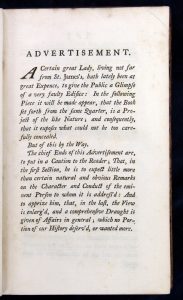 ADVERTISEMENT.
A Certain great Lady, living not far
from St. James's, hath lately been at
great Expence, to give the Public a Glimpse
of a very faulty Edifice: In the following
Piece it will be made appear, that the Book
set forth from the same Quarter, is a Pro-
ject of the like Nature; and consequently,
that it exposes what could not be too care-
fully concealed.
But of this by the Way.
The chief Ends of this Advertisement are,
to put in a Caution to the Reader; That, in
the first Section, he is to expect little more
than certain natural and obvious Remarks
on the Character and Conduct of the emi-
nent Person to whom it is address'd: And
to apprize him, that, in the last, the View
is enlarg'd, and a comprehensive Draught is
given of Affairs in general; which no Por-
tion of our History deserv'd, or wanted more.